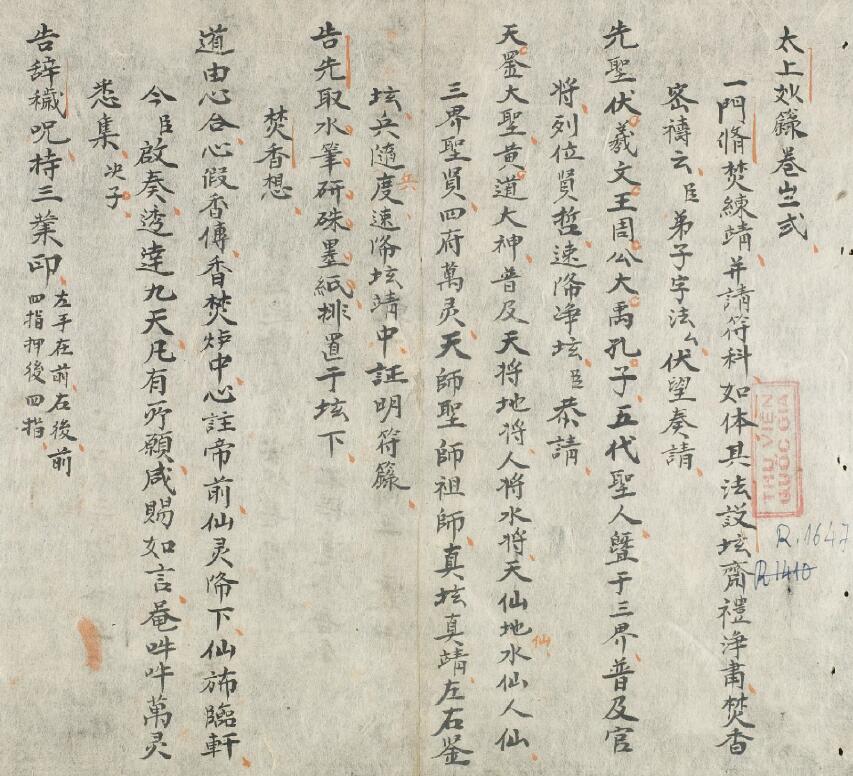 太上妙籙卷亖弍
一門脩焚練靖并請符科如体其法設坛齋禮净肅焚香
密禱云臣弟子字法厶伏望奏請
先聖伏羲文王周公大禹孔子五代聖人暨于三界普及官
将列位賢哲速降净坛臣恭請
天罡大聖黄道大神普及天将地将人将水将天仙地水仙人仙
仙
三界聖賢四府萬灵天師聖師祖師真坛真靖左右鉴
坛兵隨度速降坛靖中証明符籙
兵
告先取水筆研硃墨紙排置于坛下
焚香想
道由心合心假香傳香焚炉中心註帝前仙灵降下仙斾臨軒
今臣啟奏透達九天凢有所願咸賜如言菴吽吽萬灵
悉集决子
告辞穢呪持三業印左手在前右後前
四指押後四指
THƯ VIỆN
QUỐC GIA
R.1647
R1410